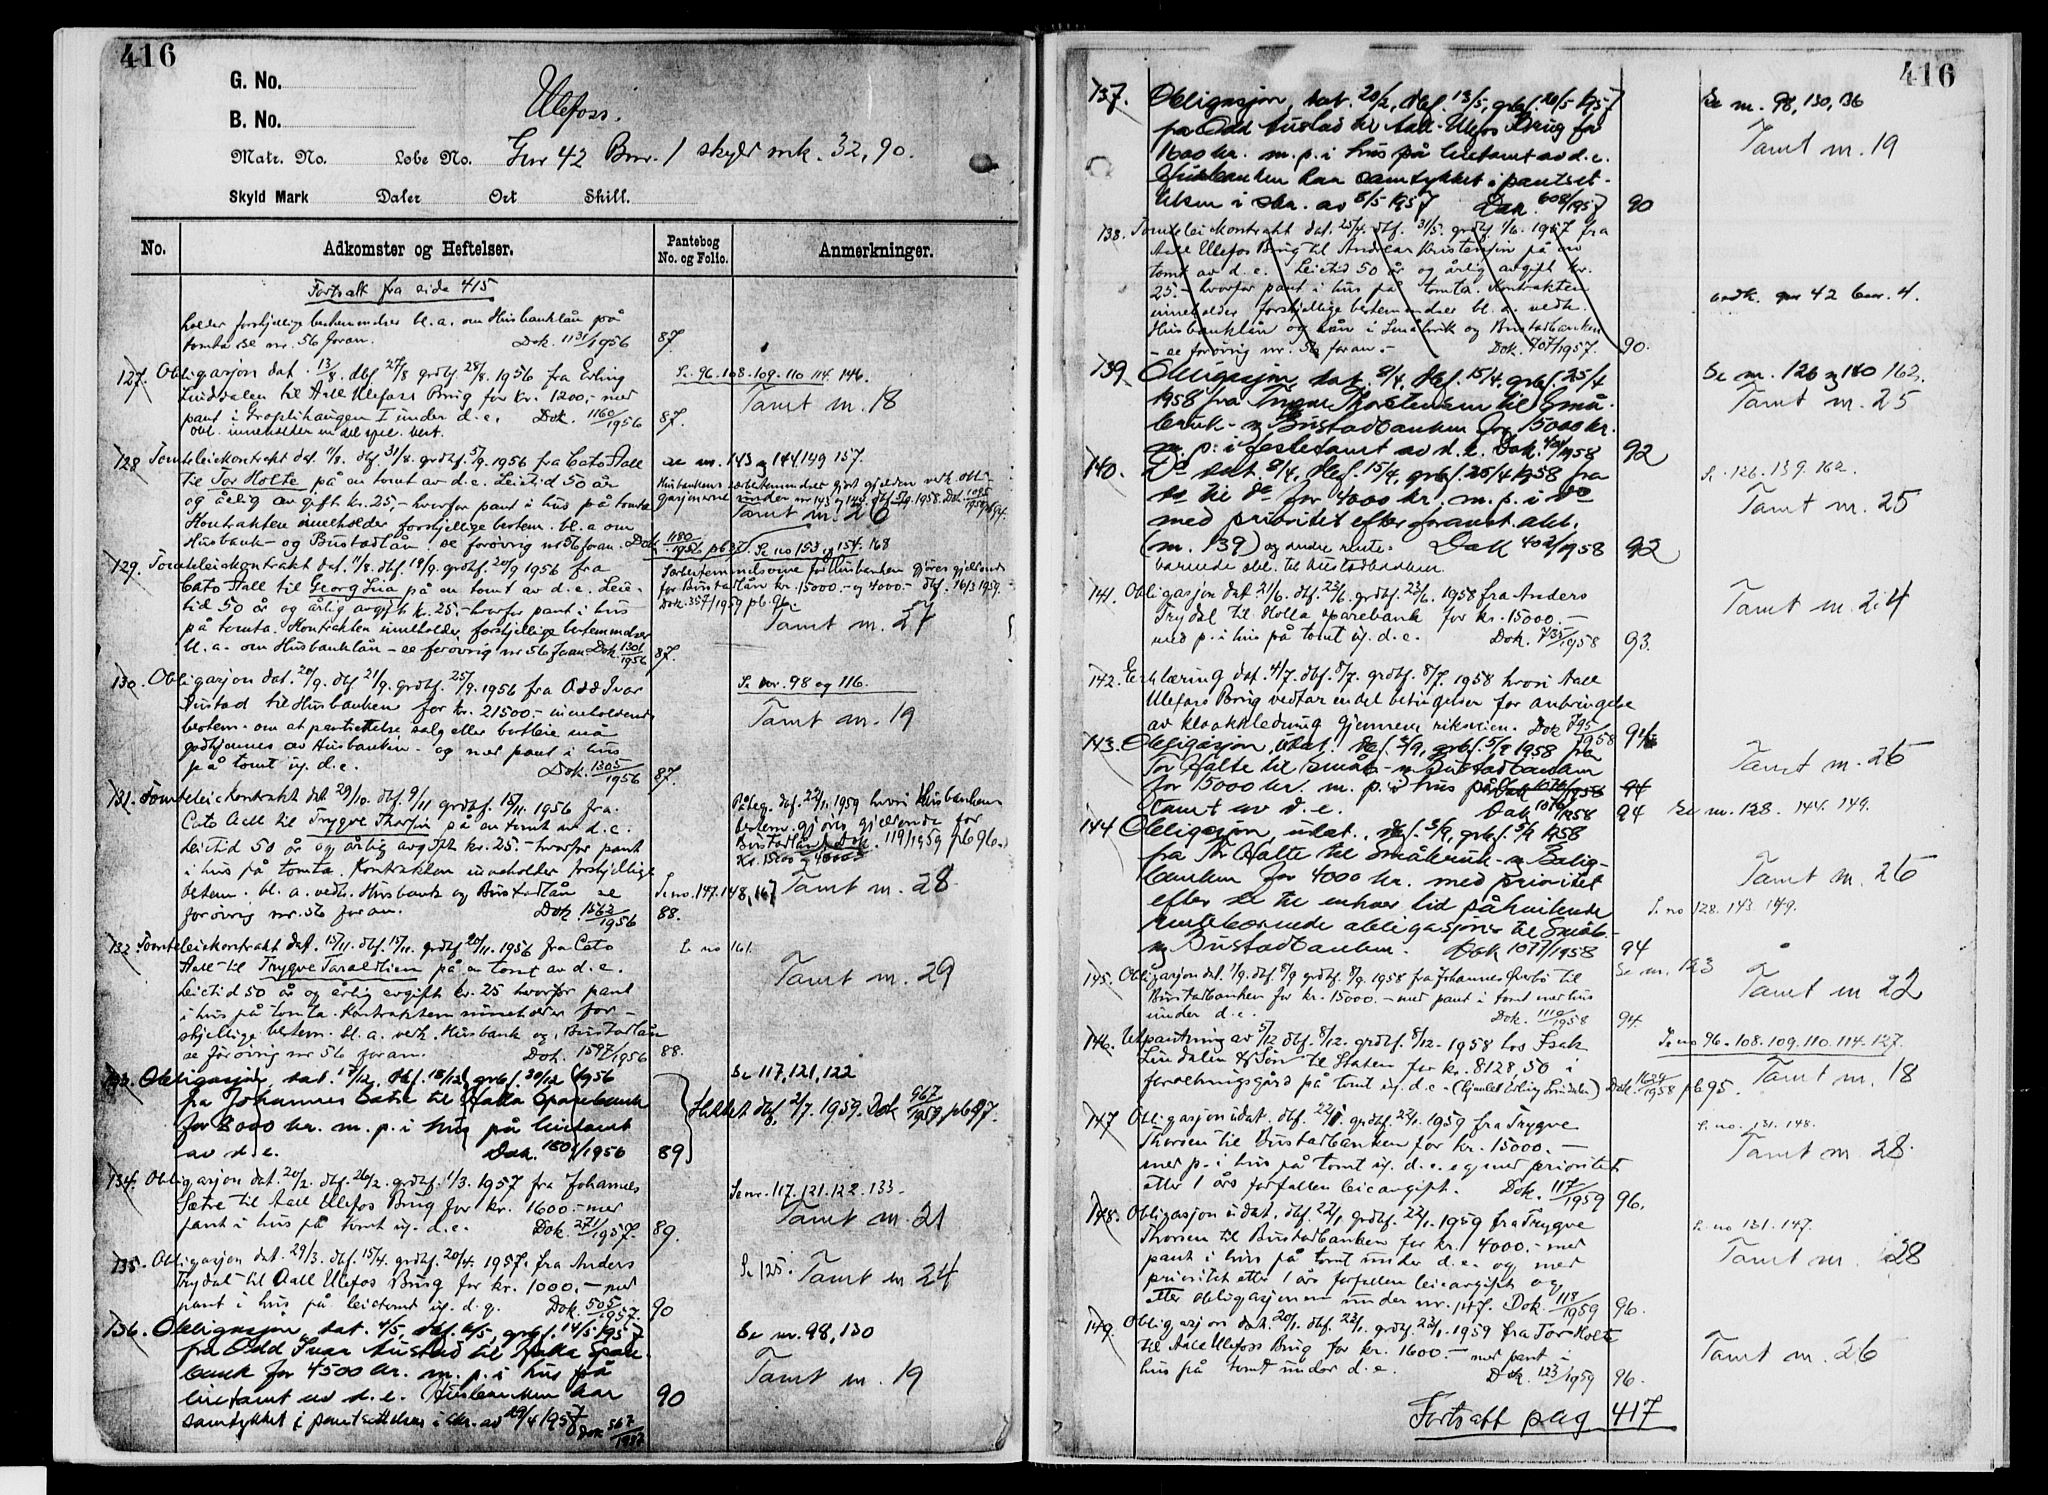 416
G. No.
B. No.
Ulefoss.
Matr. No. Løbe No. Gnr 42 Bnr. 1 skyld mk. 32,90.
Skyld Mark Daler Ort Skill.
No. Adkomster og Heftelser. Pantebog No. og Folio. Anmerkninger.
Fortsatt fra side 415
holder forskjellige bestemmelser bl.a. om Husbanklån på
tomta se nr. 56 foran. Dok. 1131/1956 87.
127. Obligasjon dat. 13/8. dbf 27/8 grdbf 28/8. 1956 fra Erling
Lindalen til Aall Ulefoss Brug for kr. 1200,- med
pant i Groptihaugen I under d.e. Dok. 1160/1956 87.
obl. inneholder en del spes. best.
Se 96.108.109.110 114. 146.
Tomt nr. 18
128 Tomteleiekontrakt dat. 11/8. dbf 31/8. grdbf. 5/9. 1956 fra Cato Aall
til Tor Holte på en tomt av d.e. Leietid 50 år
og årlig avgift kr. 25,- hvorfor pant i hus på tomta
Kontrakten inneholder forskjellige bestem. bl.a om
Husbank- og Bustadlån se forøvrig nr 56 foran. Dok 1180/1956 pb 87.
se nr. 143 og 144.149 157.
Husbankens særbestemmelser gjort gjelden vedk. obli-
gasjonerne under nr 143 og 144. dbf 5/9. 1958. Dok. 1095/1958 pb 94.
Tomt nr. 26
129. Tomteleiekontrakt dat. 11/8. dbf. 18/9. grdbf. 20/9 1956 fra
Cato Aall til Georg Lia på en tomt av d.e. Leie-
tid 50 år og årlig avgift kr. 25.- hvorfor pant i hus
på tomta. Kontrakten inneholder forskjellige bestemmelser
bl.a. om Husbanklån - se forøvrig nr 56 foran Dok 1301/1956 87.
Se no 153 og 154. 168
Særbestemmelsene for Husbanken gjøres gjeldende
for Bustadlån kr. 15000.- og 4000.- dbf. 16/3 1959.
Dok. 357/1959 pb. 96.
Tomt nr. 27
130. Obligasjon dat. 20/9. dbf 21/9. grdbf. 25/9. 1956 fra Odd Ivar
Austad til Husbanken for kr. 21500.- inneholdende
bestem. om at pantsettelse salg eller bortleie må
godkjennes av Husbanken - og med pant i hus
på tomt ig. d.e. Dok. 1305/1956 87.
Se nr. 98 og 116.
Tomt nr. 19
131. Tomteleiekontrakt dat 29/10. dbf. 9/11 grdbf. 15/11. 1956 fra
Cato Aall til Trygve Thorsen på en tomt av d.e.
Leietid 50 år og årlig avgift kr. 25.- hvorfor pant
i hus på tomta. Kontrakten inneholder forskjellige
bestem. bl.a. vedk. Husbank og Bustadlån se
forøvrig nr. 56 foran. Dok 1562/1956 88.
Påteg. dbf. 22/1. 1959 hvori Husbankens
bestem. gjøres gjeldende for
Bustadlån Dok. 119/1959 pb 96.
kr. 15000 og 4000
Se no. 147.148, 167 Tomt nr. 28
132 Tomteleiekontrakt dat. 13/11. dbf. 15/11. grdbf 20/11. 1956 fra Cato
Aall til Trygve Taraldlien på en tomt av d.e.
Leietid 50 år og årlig avgift kr. 25 hvorfor pant
i hus på tomta. Kontrakten inneholder for-
skjellige bestem. bl.a. vedk. Husbank og Bustadlån
se forøvrig nr 56 foran. Dok. 1597/1956 88.
Se no 161.
Tomt nr. 29
133. Obligasjon, dat. 17/12, dbf. 18/12, grbf. 20/12 1956
fra Johannes Sætre til Holla Sparebank
for 8000 kr. m.p. i hus på leietomt
av d.e. Dok. 1801/1956 89
Se 117,121,122
Slettet dbf. 2/7. 1959. Dok 967/1959 pb 97.
134. Obligasjon dat. 20/2. dbf. 26/2. grdbf. 1/3. 1957 fra Johannes
Sætre til Aall Ulefos Brug for kr. 1600.- med
pant i hus på tomt ig. d.e. Dok. 271/1957. 89.
Se nr. 117.121.122.133.
Tomt nr. 21
135. Obligasjon dat. 29/3. dbf. 15/4. grdbf. 20/4. 1957. fra Anders
Trydal til Aall Ulefos Brug for kr. 1000.- med
pant i hus på leietomt ig. d.g. Dok. 505/1957. 90
Se 125. Tomt nr. 24
136. Obligasjon, dat. 4/5, dbf. 6/5, grbf. 14/5 1957
fra Odd Ivar Austad til Holla Spare-
bank for 4500 kr. m.p. i hus på
leietomt av d.e. Husbanken har
samtykket i pantsettelsen i skr. av 29/4 1957 Dok 567/1957 90
Se nr. 98, 130
Tomt nr. 19
416
137. Obligasjon, dat. 20/2, dbf. 13/5, grbf. 20/5 1957
fra Odd Austad til Aall-Ulefos Brug for
1600 kr. m.p. i hus på leietomt av d.e.
Husbanken har samtykket i pantset-
telsen i skr. av 8/5 1957 Dok. 608/1957 90
Se nr. 98, 130, 136
Tomt nr. 19
138. Tomteleiekontrakt dat. 25/4. dbf. 31/5. grdbf. 1/6. 1957 fra
Aall Ulefos Brug til Andreas Kristensen på en
tomt av d.e. Leietid 50 år og årlig avgift kr.
25.- hvorfor pant i hus på tomta. Kontrakten
inneholder forskjellige bestemmelser bl.a. vedk.
Husbanklån og lån i Småbruk og Bustadbanken
- se forøvrig nr. 56 foran.- Dok. 707/1957. 90.
vedk. gnr 42 bnr. 4.
139. Obligasjon, dat. 8/4, dbf. 15/4, grbf. 25/4
1958 fra Yngve Thorstensen til Små-
bruk- og Bustadbanken for 15000 kr.
m.p. i festetomt av d.e. Dok. 401/1958 92
Se nr. 126 og 140 162.
Tomt nr. 25
140. Do dat 8/4, dbf. 15/4, grbf. 25/4 1958 fra
do til do for 4000 kr. m.p. i do
med prioritet efter foranst. obl.
(nr. 139) og andre rente- Dok 402/1958 92
bærende obl. til Bustadbanken.
Se 126. 139. 162.
Tomt nr. 25
141. Obligasjon dat 21/6. dbf. 23/6. grdbf. 23/6. 1958 fra Anders
Trydal til Holla sparebank for kr. 15000.-
med p. i hus på tomt ig. d.e. Dok. 735/1958 93.
Tomt nr. 24
142. Erklæring dat. 4/7. dbf. 8/7. grdbf. 8/7. 1958 hvori Aall
Ulefoss Brug vedtar endel betingelser for anbringelse
av kloakkledning gjennem riksveien. Dok 795/1958 94
143. Obligasjon, udat., dbf. 3/9, grbf. 5/9 1958 fra
Tor Holte til Småb- og Bustadbanken
for 15000 kr. m.p. i hus på Dok 1076/1958 94
tomt av d.e. Dok 1076/1958 94
Tomt nr. 26
Se nr. 128. 144. 149.
144 Obligasjon, udat., dbf. 3/9, grbf. 5/9 1958
fra Th. Holte til Småbruk- og Bolig-
banken for 4000 kr. med prioritet
efter de til enhver tid påhvilende
rentebærende obligasjoner til Småb-
og Bustadbanken. Dok 1077/1958 94
Tomt nr. 26
Se no 128. 143 149.
145. Obligasjon dat. 1/9. dbf 8/9 grdbf. 8/9. 1958 fra Johannes Øverbø til
Bustadbanken for kr. 15000.- med pant i tomt med hus
under d.e. Dok. 1110/1958 94.
Se nr. 123
Tomt nr 22
146. Utpantning av 5/12 dbf. 8/12. grdbf. 8/12- 1958 hos Isak
Lindalen & Søn til Staten for kr. 8128,50 i
forretningsgård på tomt ig. d.e - (hjemlet Erling Lindalen) Dok. 1624/1958 pb 95.
Se no 96.108.109.110.114.127.
Tomt nr. 18
147 Obligasjon udat. dbf. 22/1. grdbf. 22/1. 1959 fra Trygve
Thorsen til Bustadbanken for kr. 15000.-
med p. i hus på tomt ig. d.e. og med prioritet
etter 1 års forfallen leieavgift. Dok. 117/1959 96.
Se no. 131. 148.
Tomt nr 28.
148. Obligasjon udat. dbf. 22/1 grdbf. 22/1. 1959 fra Trygve
Thorsen til Bustadbanken for kr. 4000.- med
pant i hus på tomt under d.e. og med
prioritet etter 1 års forfallen leieavgift og
etter obligasjonen under nr. 147. Dok. 118/1959 96.
Se no 131. 147.
Tomt nr. 28
149. Obligasjon dat. 20/1. dbf. 23/1. grdbf. 23/1. 1959 fra Tor Holte
til Aall Ulefoss Brug for kr. 1600.- med pant i
hus på tomt under d.e. Dok. 123/1959 96.
Tomt nr. 26
Fortsatt pag 417